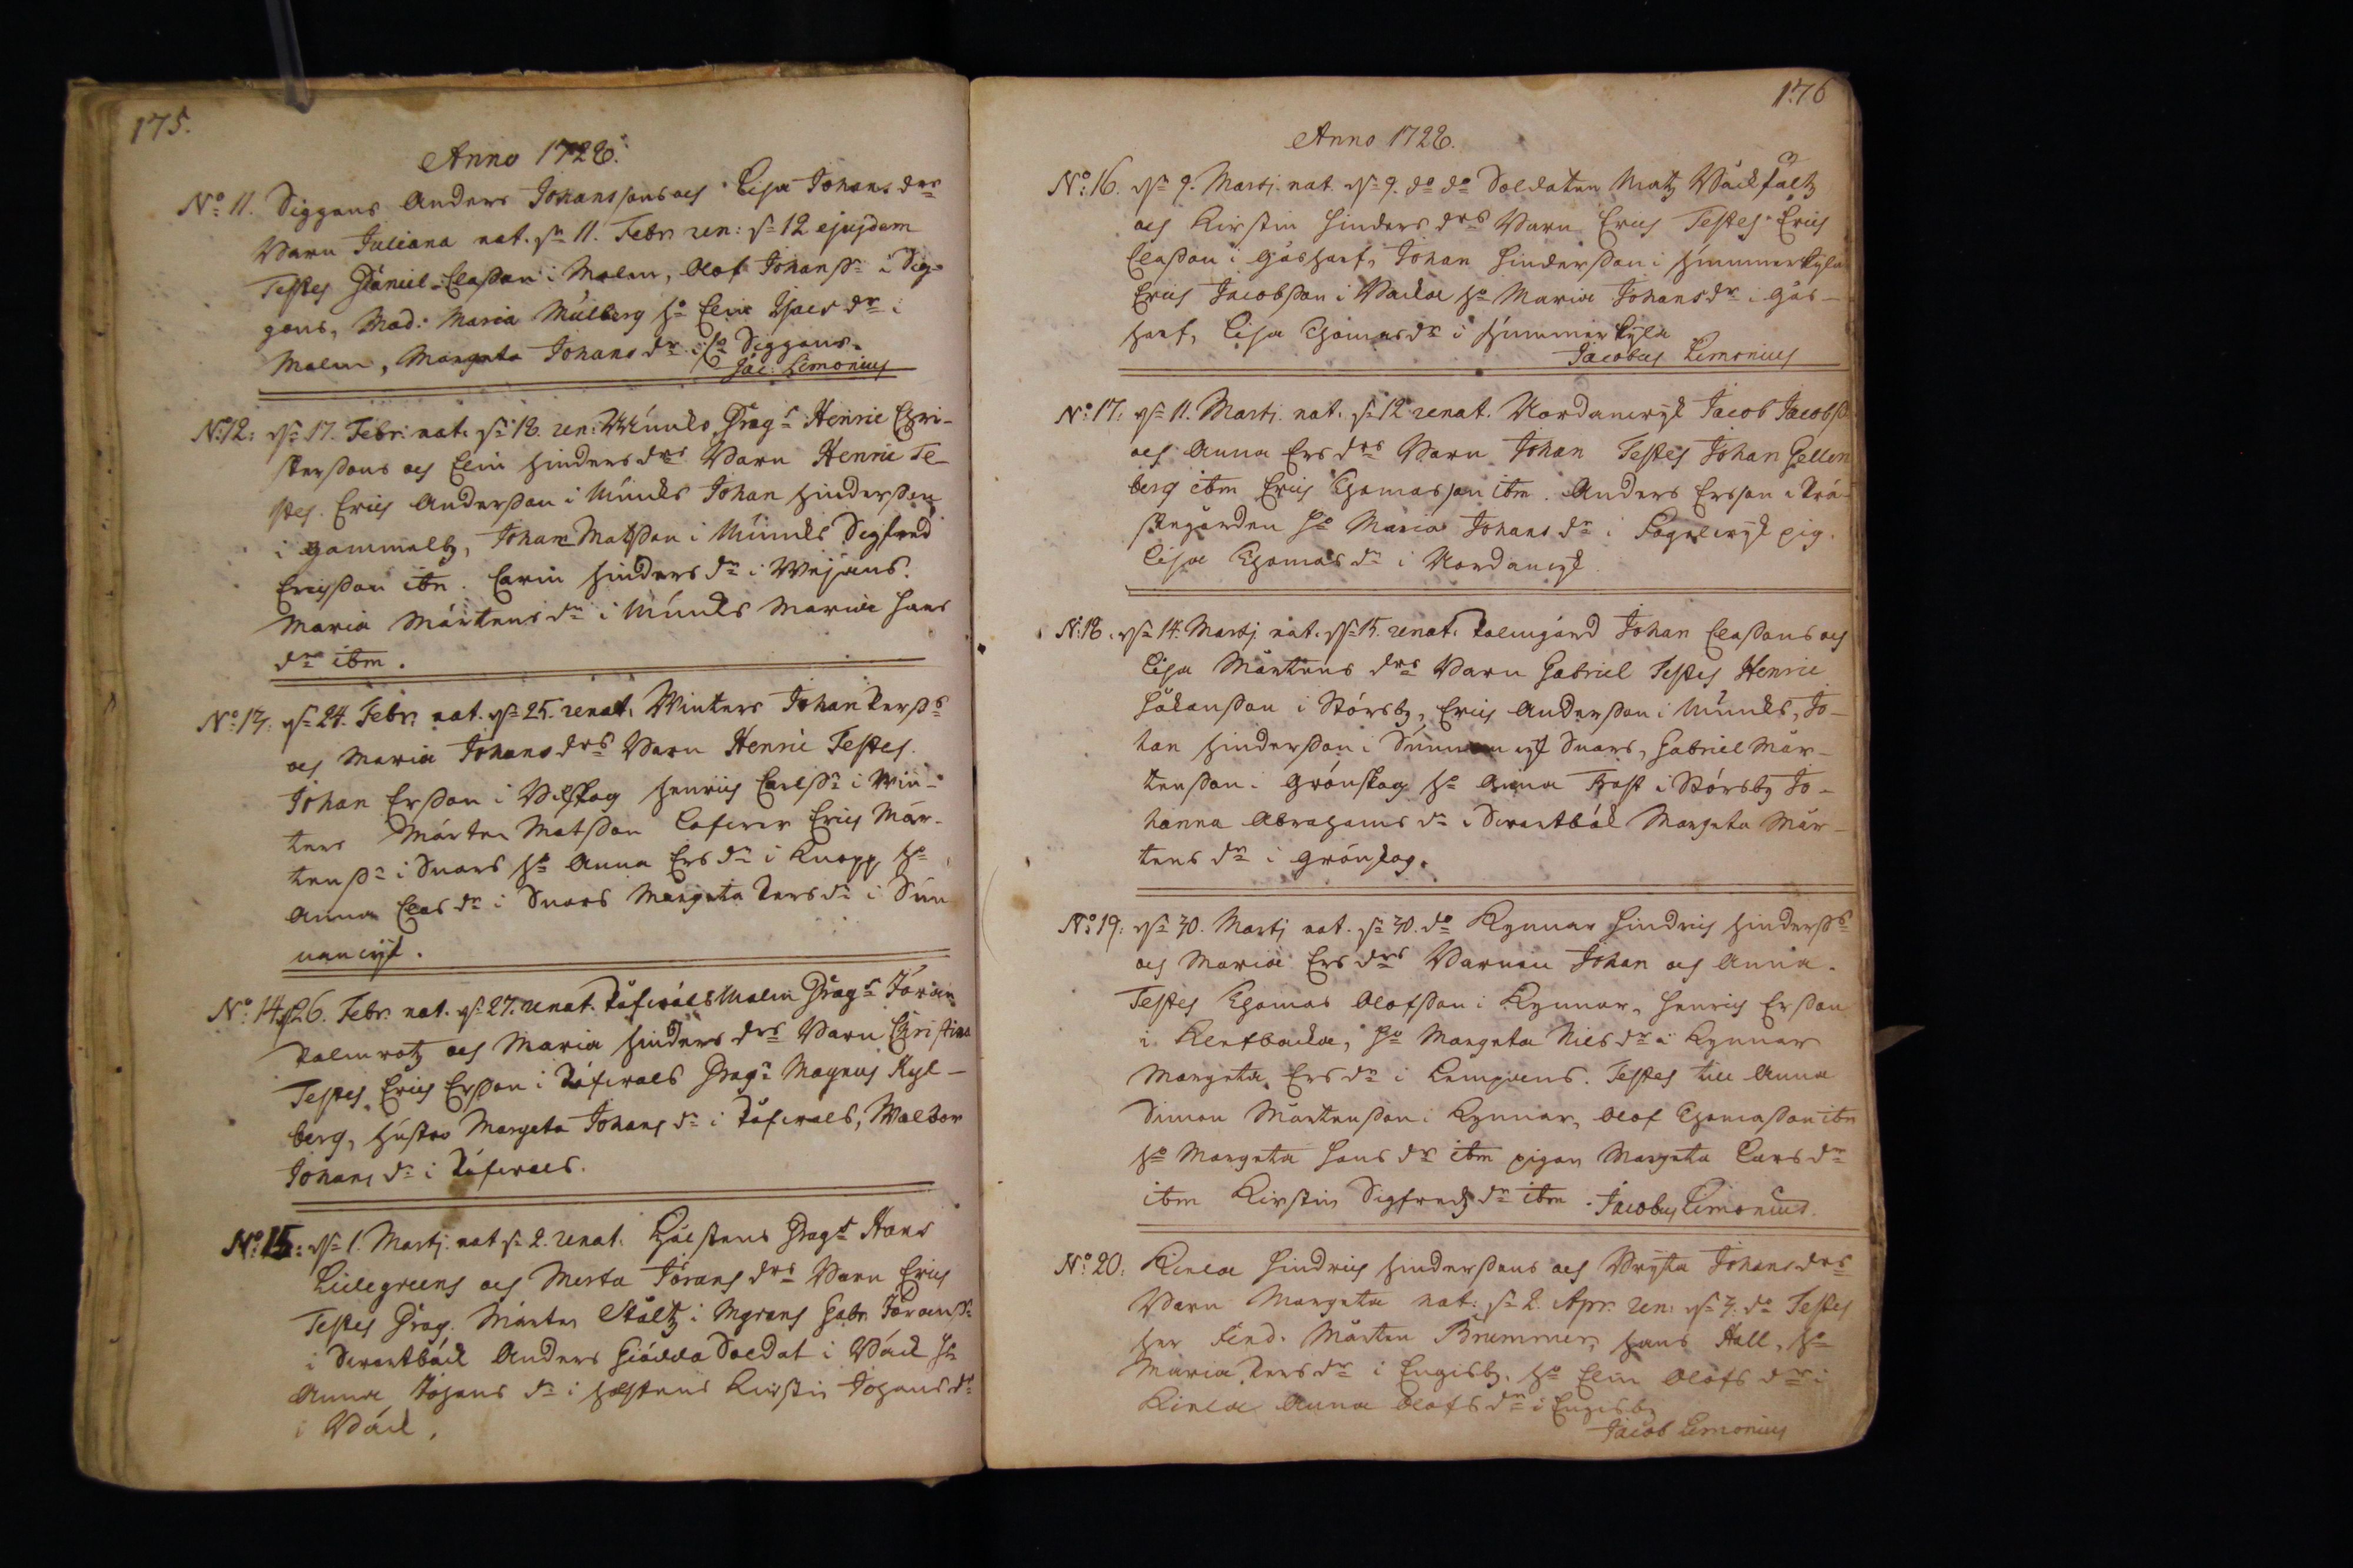 175.
Anno 1728.
No 11. Siggans Anders Johanssons och Lisa Johans drs
Barn Juliana nat. dn 11. Febr. ren: dn 12 ejusdem
Testes Daniel Claßon i Malm, Olof Johanßn i Sig-
gans, Mad: Maria Mülberg ho Elin Isacs dr i
Malm, Margeta Johans dr i Siggans.
Jac: Limonius
N:12: dn 17. Febr: nat. dn 18. ren. Munks Dragn Henric Chri-
sterßons och Elin Hinders drs Barn Henric Te-
stes. Erich Anderßon i Munks Johan Hinderßon
i Gammelby, Johan Matßon i Munks Sigfred
Erichßon ibm. Carin Hinders dr i
Maria Mårtens dr i Munks Maria Hans
dr ibm.
No 13: dn 24. Febr. nat. dn 25. renat. Winters Johan Persßs
och Maria Johans drs Barn Henric Testes.
Johan Erßon i Henrich Carlßn i Win-
ters Mårten Matßon Erich Mår-
tenßn i Snars ho Anna Ers dr i Knapp, ho
Anna Clas dr i Snars Margeta Pers dr i Sun
nanwijk.
No: 14. dn 26. Febr. nat. dn 27. renat. Malm Dragn Jöran
Palmrotz och Maria Hinders drs Barn Christina
Testes, Erich Erßon i Dragn Magnus Kyl-
berg, hustro Margeta Johans dr i Walbor
Johans dr i
No: 15: dn 1. Martj. nat dn 2. renat. Dragn Hans
Lillegreens och Merta Jörans drs Barn Erich
Testes Drag. Mårten Ståltz i Mgrans Gabr. Jöranßn
i Swartbäck Anders Soldat i Bäck ho
Anna Johans dr i Kirstin Johans dr
i Bäck.
176
Anno 1728.
No: 16. dn 9. Martj. nat. dn 9. do do Soldaten Matz
och Kirstin Hinders drs Barn Erich Testes Erich
Claßon i Johan Hinderßon i
Erich Jacobßon i Backa ho Maria Johans dr i
Lisa Thomas dr i
Jacobus Limonius
No: 17: dn 11. Martj. nat. dn 12 renat. Nordanwijk Jacob Jacobßs
och Anna Ers drs Barn Johan Testes Johan Gellen
berg ibm Erich Thomasson ibm. Anders Ersson i Prä-
stegården ho Maria Johans dr i Fogelwijk pig.
Lisa Thomas dr i Nordanwijk
N:18. dn 14. Martj nat. dn 15. renat. Palmgård Johan Claßons och
Lisa Mårtens drs Barn Gabriel Testes Henric
Håkanßon i Störsby, Erich Anderßon i Munks, Jo-
han Hinderßon i Sunnanwijk Snars, Gabriel Mår-
tenßon i Grönskog ho Anna i Störsby Jo-
hanna Abrahams dr i Swartbäck Margeta Mår-
tens dr i Grönskog.
No: 19: dn 30. Martj nat. dn 30. do Kynnar Hindrich Hinderßs
och Maria Ers drs Barnen Johan och Anna.
Testes Thomas Olofßon i Kynnar, Henrich Erßon
i ho Margeta Nils dr i Kynnar
Margeta Ers dr i Testes till Anna
Simon Mårtenßon i Kynnar, Olof Thomaßon ibm
ho Margeta Hans dr ibm pigan Margeta Lars dr
ibm Kirstin Sigfreds dr ibm. Jacobus Limonius.
No: 20. Kinla Hindrich Hinderßons och Bryta Johans drs
Barn Margeta nat: dn 2. Apr. ren: dn 3. do Testes
Mårten Brummer, Hans Hall, ho
Maria Pers dr i Engisby, ho Elin Olofs dr i
Kinla Anna Olofs dr i Engisby
Jacob Limonius